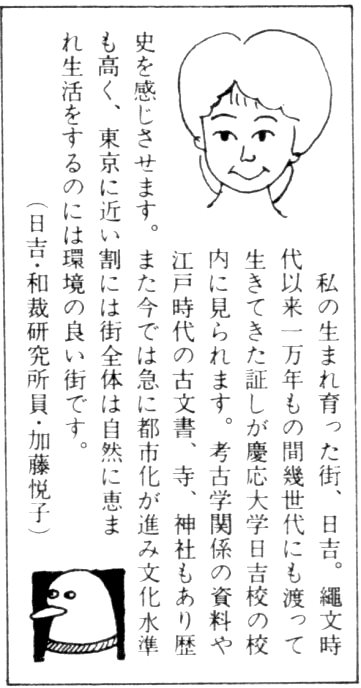 私の生まれ育った街、日吉。　縄文時
代以来一万年もの間幾世代にも渡って
生きてきた証しが慶応大学日吉校の校
内に見られます。考古学関係の資料や
江戸時代の古文書、寺、神社もあり歴
史を感じさせます。また今では急に都市化が進み文化水準
も高く、東京に近い割には街全体は自然に恵ま
れ生活をするのには環境の良い街です。
（日吉・和裁研究所員・加藤悦子）